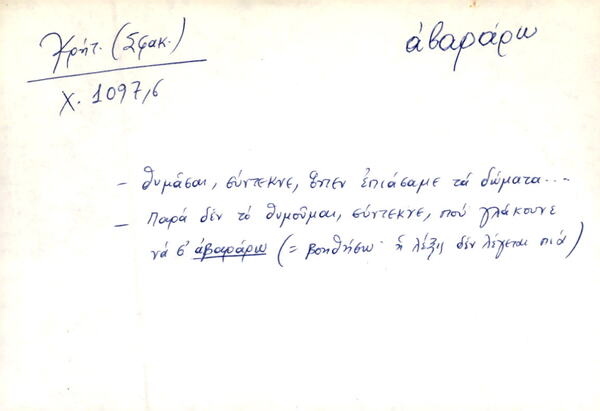 Κρήτ. (Σφακ.)
ἀβαράρω
Χ. 1097,6
– Θυμᾶσαι, σύντεκνε, ὅντεν ἐπιάσαμε τά δώματα...
– Παρά δέν τό θυμοῦμαι, σύντεκνε, πού γλάκουνε
νά σ' ἀβαράρω (= βοηθήσω· ἡ λέξις δέν λέγεται πιά)